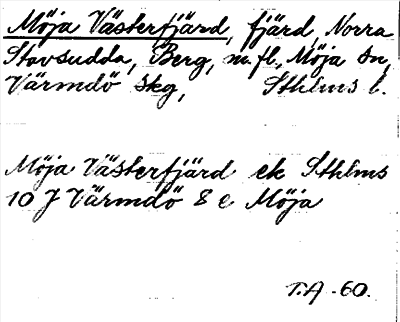 Möja Västerfjärd, fjärd, Norra
Stavsudda, Berg, m.fl., Möja sn,
Värmdö skg, Sthlms l.
Möja Västerfjärd ek Sthlms
10 J Värmdö 8 e Möja
T.A -60.